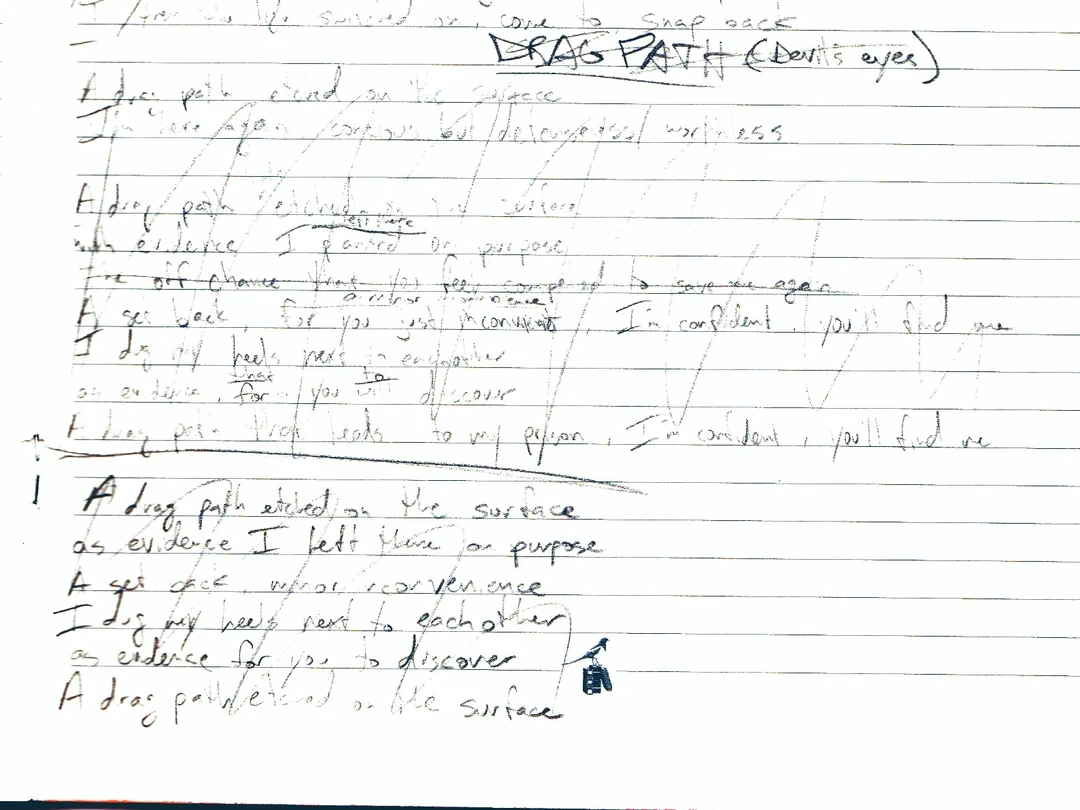 come to snap back
DRAG PATH (Devil's eyes)
A drag path etched on the surface
I'm here again, concious but defenseless/ worthless
A drag path etched on the surface
left there
evidence I planted on purpose
The off chance that you feel compelled to save me again
a minor inconvenience
A set back, for you just inconvenient, I'm confident, you'll find me
I dig my heels next to eachother
that to
as evidence, for you will discover
A drag path that leads to my prison, I'm confident, you'll find me
A drag path etched on the surface
as evidence I left there on purpose
A set back, minor inconvenience
I dig my heels next to each other
as evidence for you to discover
A drag path etched on the surface